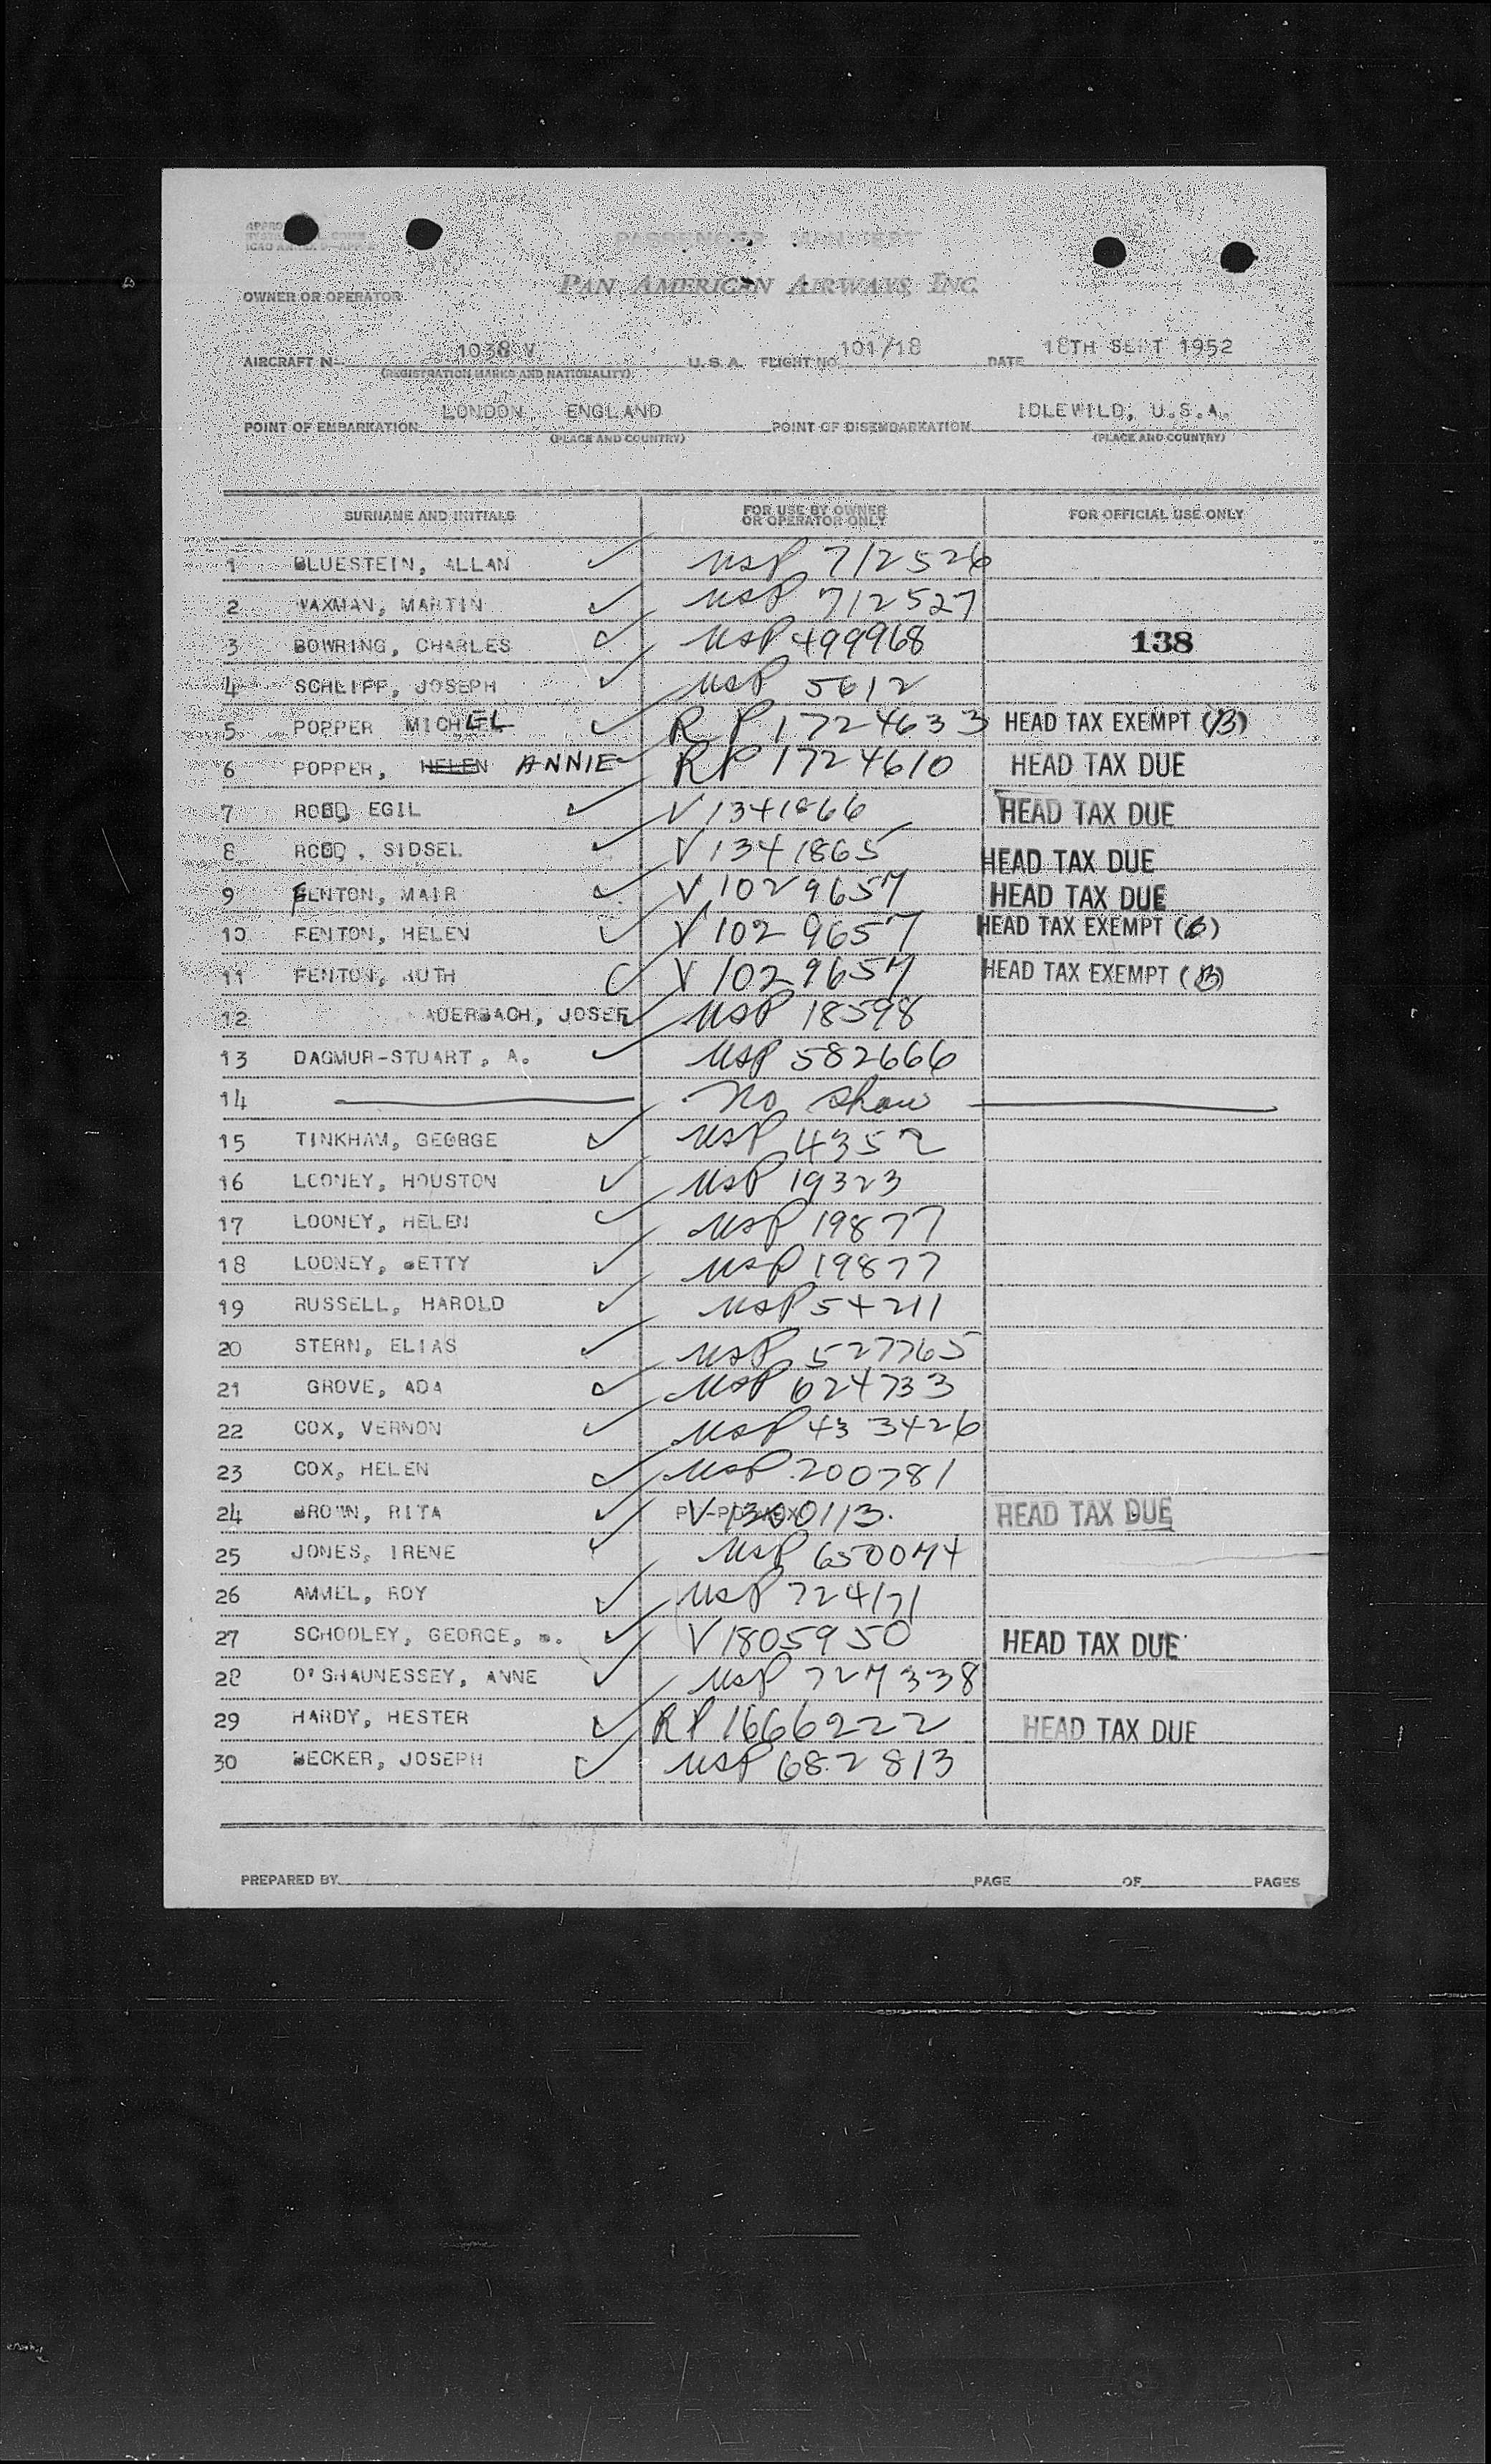 PASSENGER MANIFEST
PAN AMERICAN AIRWAYS INC.
OWNER OR OPERATOR
AIRCRAFT N- 1038 V U.S.A. FLIGHT NO. 101/18 DATE 18TH SEPT 1952
(REGISTRATION MARKS AND NATIONALITY)
POINT OF EMBARKATION LONDON ENGLAND POINT OF DISEMBARKATION IDLEWILD, U.S.A.
(PLACE AND COUNTRY) (PLACE AND COUNTRY)
SURNAME AND INITIALS FOR USE BY OWNER OR OPERATOR ONLY FOR OFFICIAL USE ONLY
1 BLUESTEIN, ALLAN ✓ USP 712526
2 WAXMAN, MARTIN ✓ USP 712527
3 BOWRING, CHARLES ✓ USP 499968 138
4 SCHLIFF, JOSEPH ✓ USP 5612
5 POPPER MICHEL ✓ RP 1724633 HEAD TAX EXEMPT (B)
6 POPPER, HELEN ANNIE ✓ RP 1724610 HEAD TAX DUE
7 EGIL ✓ V 1341866 HEAD TAX DUE
8 SIDSEL ✓ V 1341865 HEAD TAX DUE
9 FENTON, MAIR ✓ V 1029657 HEAD TAX DUE
10 FENTON, HELEN ✓ V 1029657 HEAD TAX EXEMPT (B)
11 FENTON, RUTH ✓ V 1029657 HEAD TAX EXEMPT (B)
12 AUERBACH, JOSEF ✓ USP 18598
13 DAGMUR-STUART, A. ✓ USP 582666
14 No Show
15 TINKHAM, GEORGE ✓ USP 4352
16 LOONEY, HOUSTON ✓ USP 19323
17 LOONEY, HELEN ✓ USP 19877
18 LOONEY, BETTY ✓ USP 19877
19 RUSSELL, HAROLD ✓ USP 54211
20 STERN, ELIAS ✓ USP 527765
21 GROVE, ADA ✓ USP 624733
22 COX, VERNON ✓ USP 433426
23 COX, HELEN ✓ USP 200781
24 BROWN, RITA ✓ V 1300113. HEAD TAX DUE
25 JONES, IRENE ✓ USP 650074
26 AMMEL, ROY ✓ USP 724171
27 SCHOOLEY, GEORGE, ✓ V 1805950 HEAD TAX DUE
28 O'SHAUNESSEY, ANNE ✓ USP 727338
29 HARDY, HESTER ✓ RP 1666222 HEAD TAX DUE
30 BECKER, JOSEPH ✓ USP 682813
PREPARED BY PAGE OF PAGES